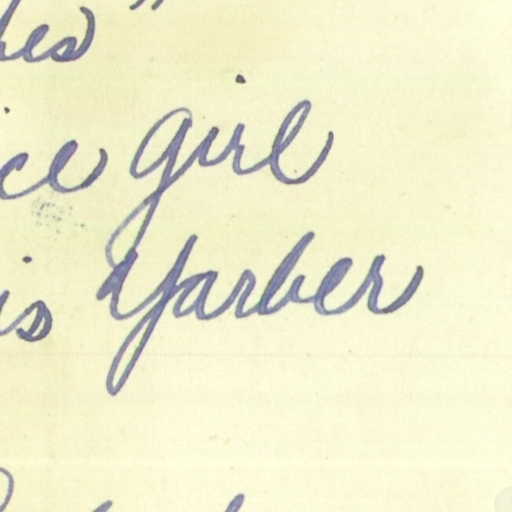 es"
ice girl
is Yarber